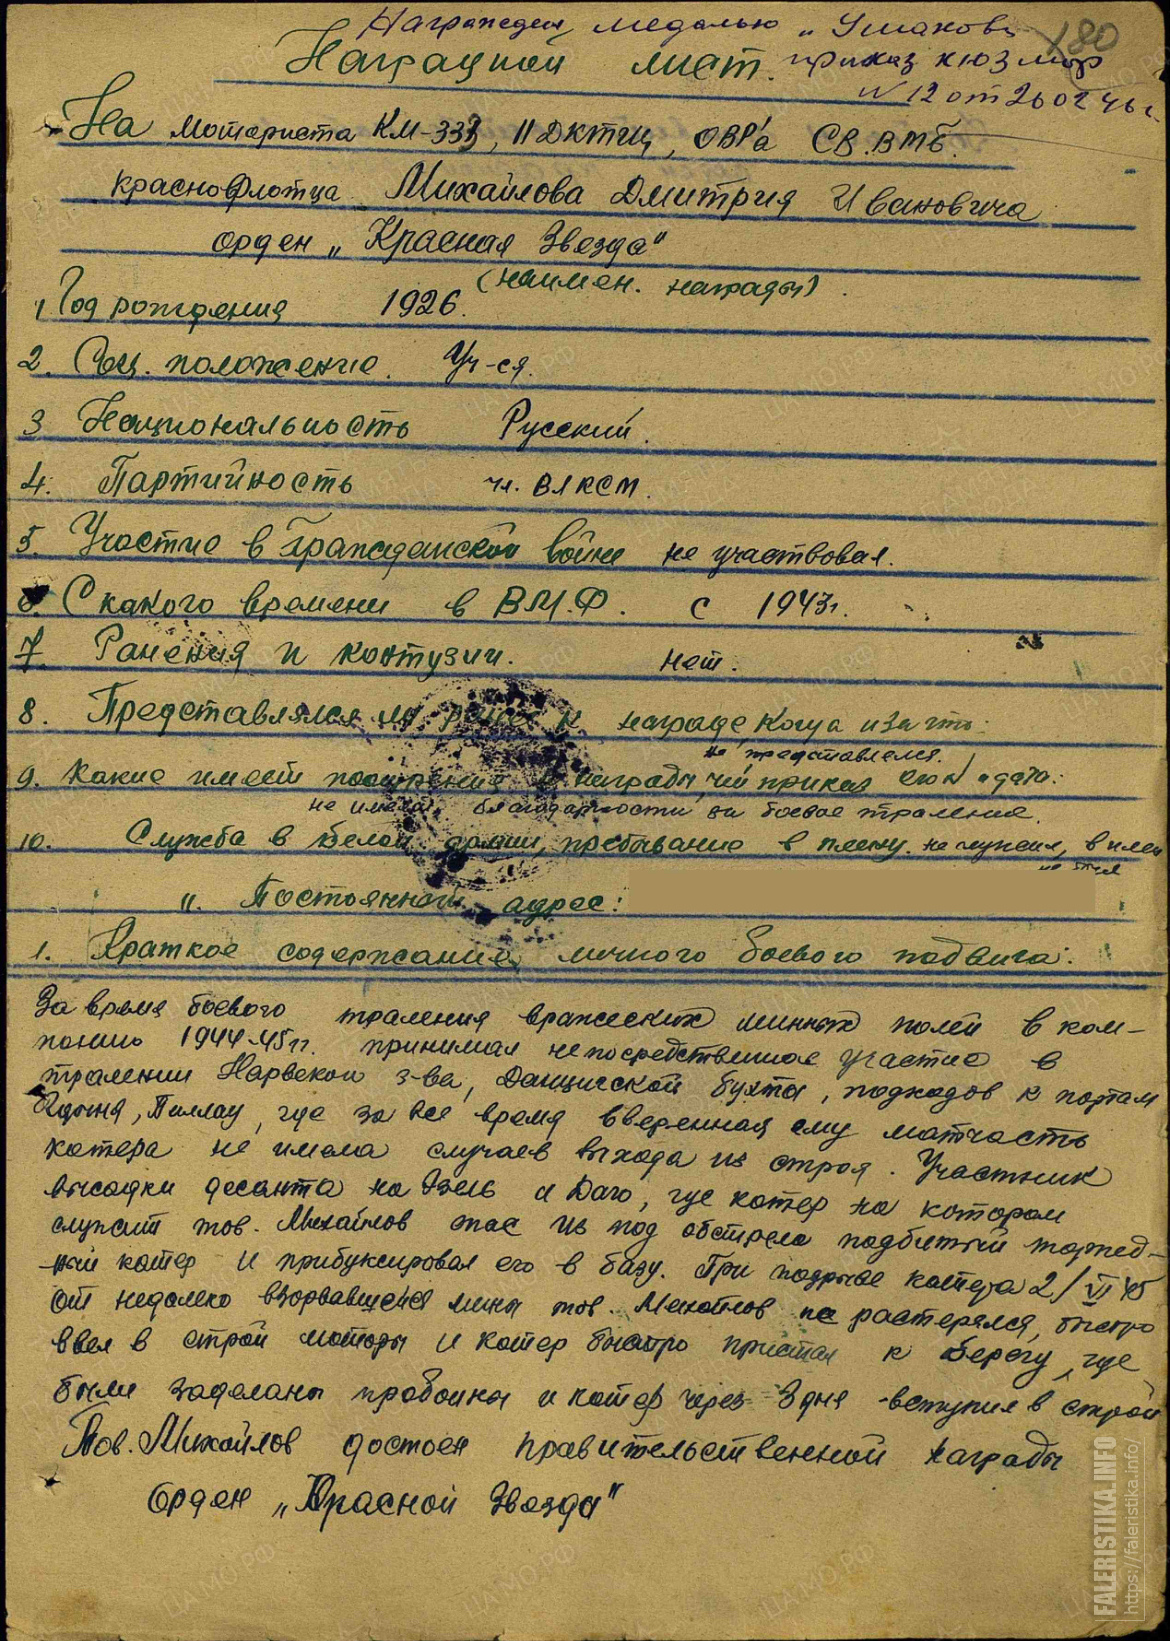 Награжден медалью „Ушакова
180
Наградной лист. приказ КЮЗмор
N 12 от 26 02 46 г.
На моториста КМ-333, II ДКТЩ, ОВР'а СВ.ВМБ.
краснофлотца Михайлова Дмитрия Ивановича
орден „Красная Звезда"
(наимен. награды).
1, Год рождения 1926.
2. Соц. положение. Уч-ся.
3 Национальность Русский.
4. Партийность чл. ВЛКСМ.
5. Участие в Гражданской войне не участвовал.
6. С какого времени в В.М.Ф. с 1943г.
7 Ранения и контузии. нет.
8. Представлялся ли ранее к награде когда и за что:
не представлялся.
9. Какие имеет поощрения и награды, чей приказ его N и дата:
не имеет. благодарности за боевое траление.
10. Служба в белой армии, пребывание в плену. не служил, в плену
не был
11. Постоянной адрес:
1. Краткое содержание личного боевого подвига:
За время боевого траления вражеских минных полей в ком-
панию 1944-45 гг. принимал непосредственное участие в
тралении Нарвского з-ва, Данцигской бухты, подходов к портам
Гдыня, Пиллау, где за все время вверенная ему матчасть
катера не имела случаев выхода из строя. Участник
высадки десанта на Эзель и Даго, где катер на котором
служит тов. Михайлов спас из под обстрела подбитый торпед-
ный катер и прибуксировал его в базу. При подрыве катера 2/VI 45
от недалеко взорвавшейся мины тов. Михайлов не растерялся, быстро
ввел в строй моторы и катер быстро пристал к берегу, где
были заделаны пробоины и катер через 3 дня вступил в строй
Тов. Михайлов достоен правительственной награды
Орден „Красной Звезды"
FALERISTIKA.INFO
https://faleristika.info/
ЦАМО.РФ